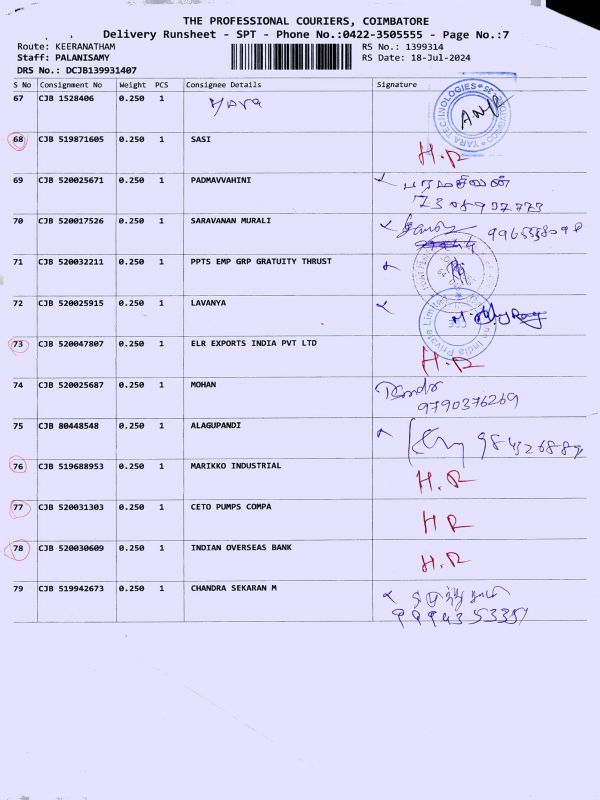 THE PROFESSIONAL COURIERS, COIMBATORE
Delivery Runsheet - SPT - Phone No.:0422-3505555 - Page No.:7
Route: KEERANATHAM RS No.: 1399314
Staff: PALANISAMY RS Date: 18-Jul-2024
DRS No.: DCJB139931407
S No Consignment No Weight PCS Consignee Details Signature
67 CJB 1528406 0.250 1 Yara
YARA TECHNOLOGIES
68 CJB 519871605 0.250 1 SASI H.R
69 CJB 520025671 0.250 1 PADMAVVAHINI
70 CJB 520017526 0.250 1 SARAVANAN MURALI
71 CJB 520032211 0.250 1 PPTS EMP GRP GRATUITY THRUST
72 CJB 520025915 0.250 1 LAVANYA
India Private Limited
73 CJB 520047807 0.250 1 ELR EXPORTS INDIA PVT LTD H.R
74 CJB 520025687 0.250 1 MOHAN
9790376269
75 CJB 80448548 0.250 1 ALAGUPANDI
76 CJB 519688953 0.250 1 MARIKKO INDUSTRIAL H.R
77 CJB 520031303 0.250 1 CETO PUMPS COMPA HR
78 CJB 520030609 0.250 1 INDIAN OVERSEAS BANK H.R
79 CJB 519942673 0.250 1 CHANDRA SEKARAN M